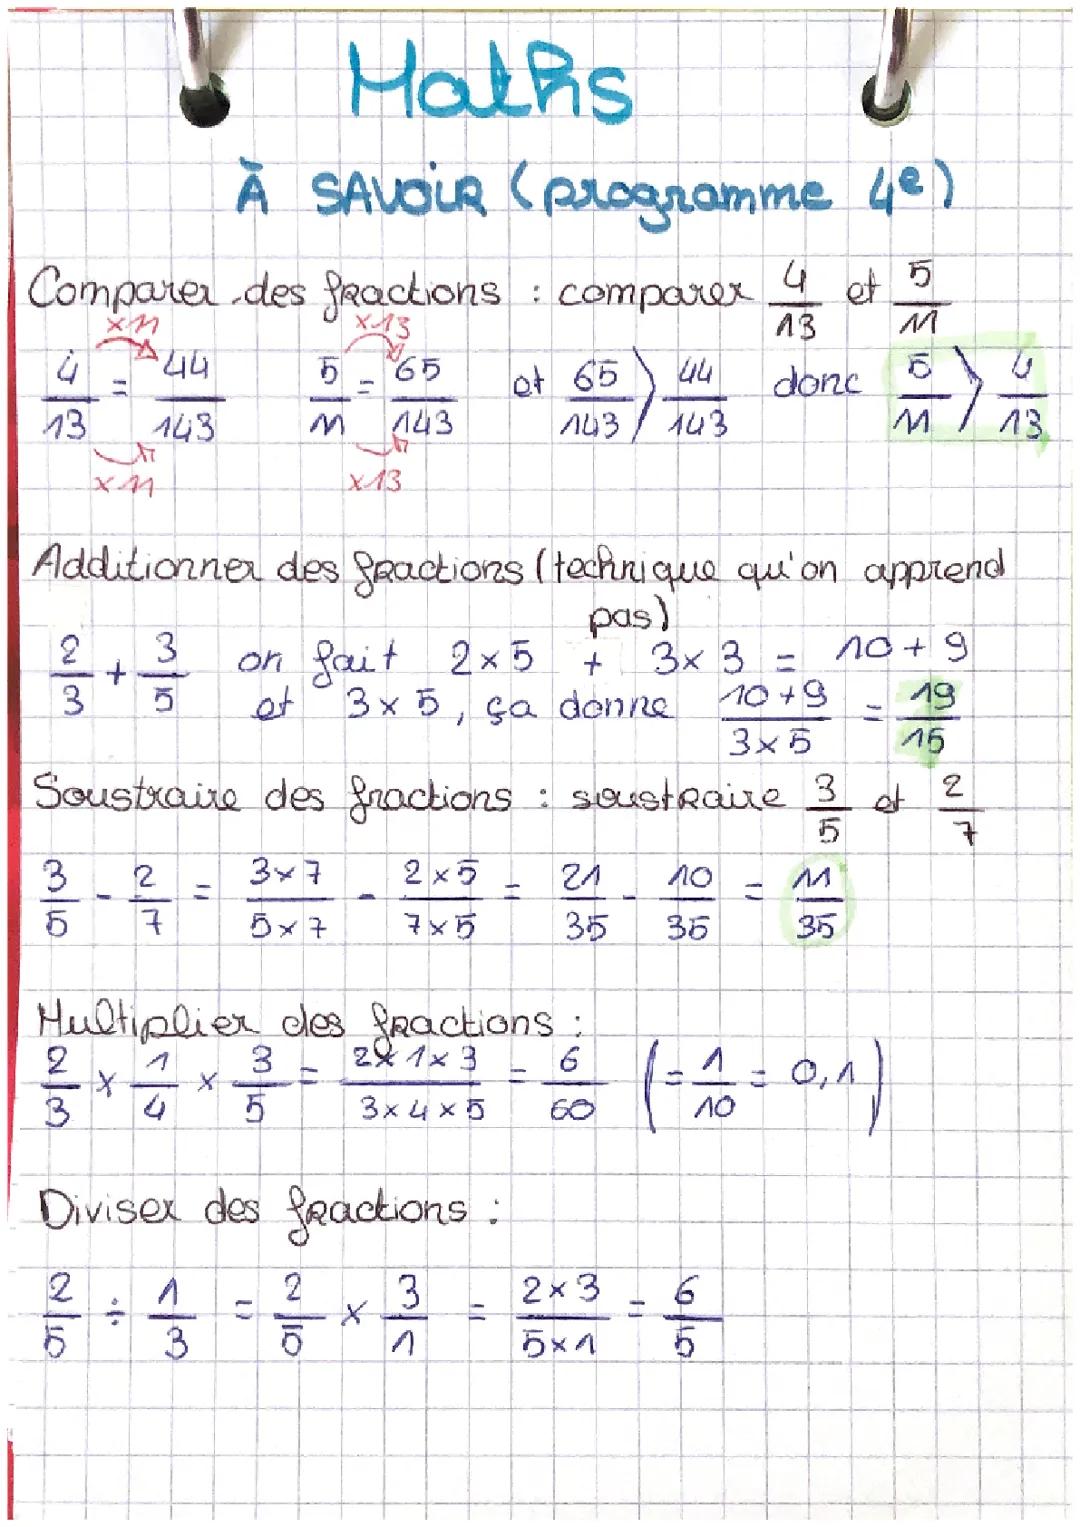 Maths
À SAVOIR (programme 4e)
Comparer des fractions : comparer 4/13 et 5/11
×11 ×13
4/13 = 44/143 5/11 = 65/143 et 65/143 > 44/143 donc 5/11 > 4/13
×11 ×13
Additionner des fractions (technique qu'on apprend
pas)
2/3 + 3/5 on fait 2×5 + 3×3 = 10+9
et 3×5, ça donne 10+9/3×5 = 19/15
Soustraire des fractions : soustraire 3/5 et 2/7
3/5 - 2/7 = 3×7/5×7 - 2×5/7×5 = 21/35 - 10/35 = 11/35
Multiplier des fractions :
2/3 × 1/4 × 3/5 = 2×1×3/3×4×5 = 6/60 (= 1/10 = 0,1)
Diviser des fractions :
2/5 ÷ 1/3 = 2/5 × 3/1 = 2×3/5×1 = 6/5